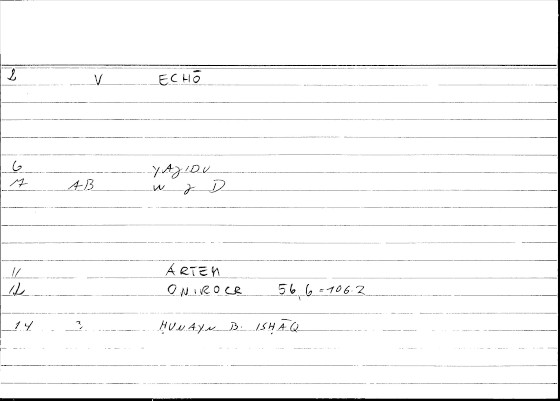 2 V ECHŌ
6 YAJIDU
7 AB W J D
11 ARTEM
12 ONIROCR 56,6 = 106.2
14 ? ḤUNAYN B. ISḤĀQ